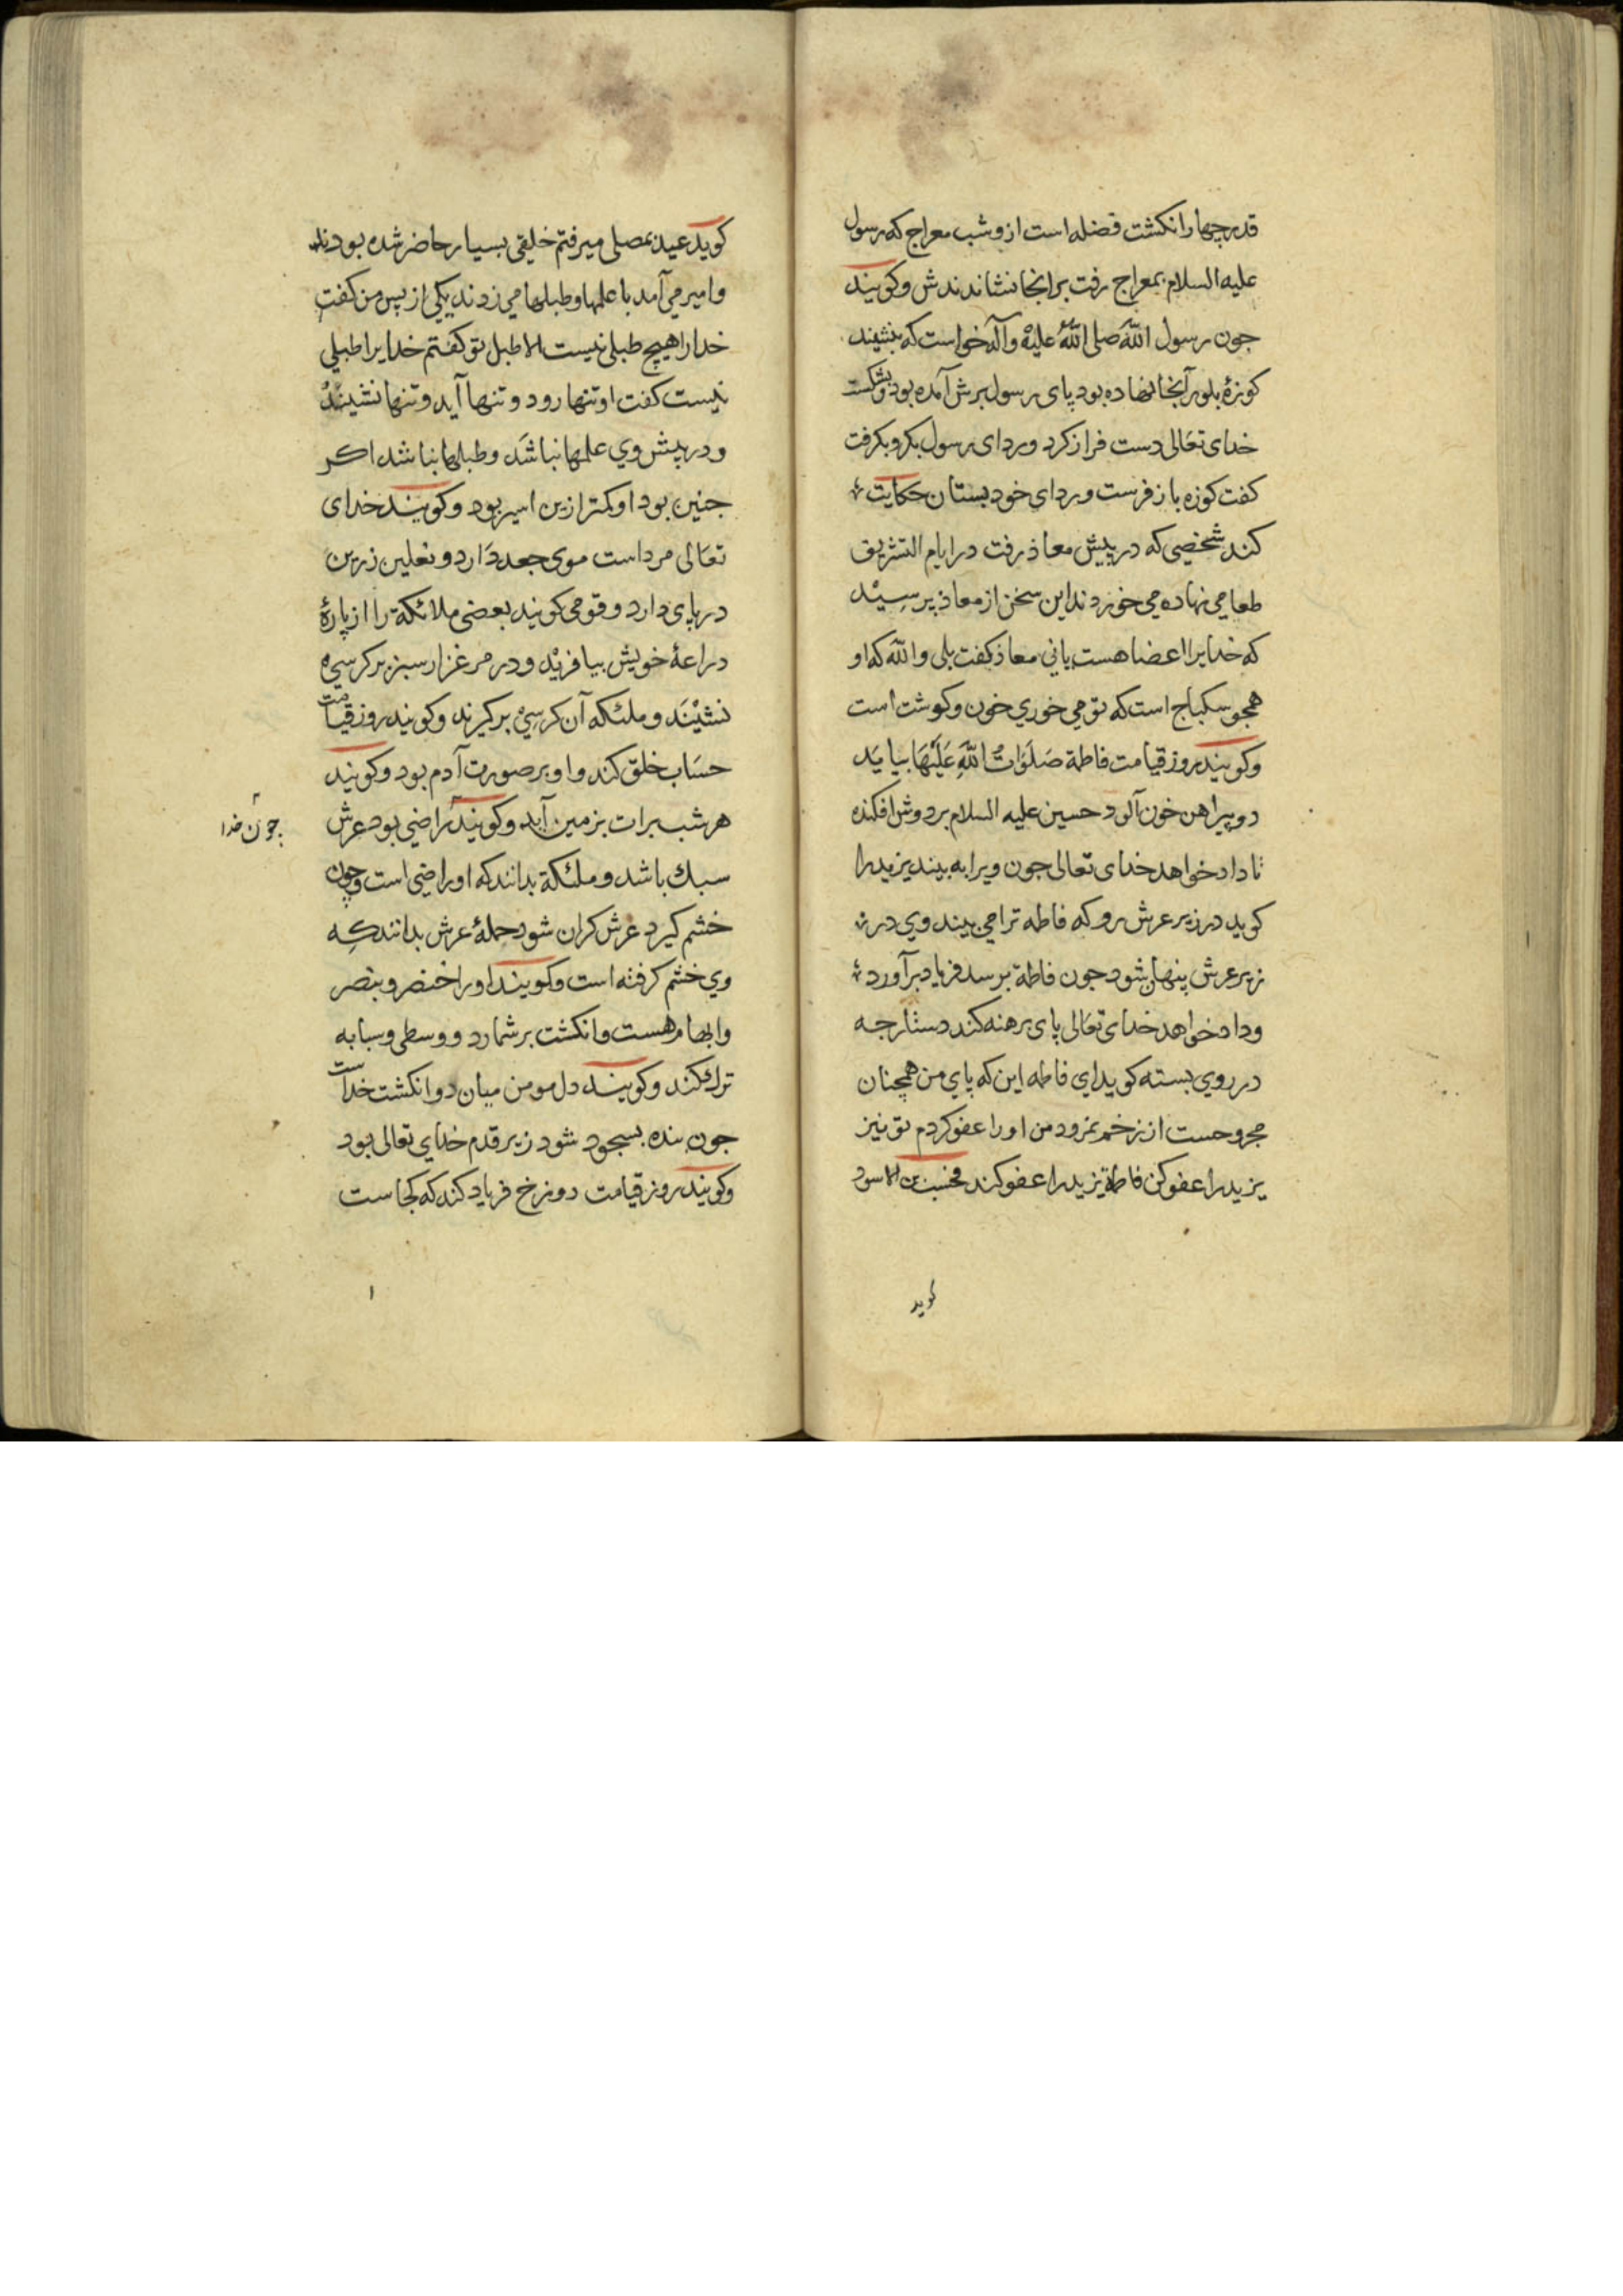 قدر چهار انكشت فضله است ازو شب معراج كه رسول
عليه السلام بمعراج رفت بر انجا نشاندندش وكويند
جون رسول الله صلى الله عليه وآله خواست كه بنشيند
كوزهٔ بلور آنجا نهاده بود پاى رسول برش آمده بود وبشكست
خداى تعالى دست فراز كرد ورداى رسول بكرو بكرفت
كفت كوزه باز فرست ورداى خود بستان حكايت
كند شخصى كه در پيش معاذ رفت در ايام التشريق
طعامي نهاده مي خوردند اين سخن از معاذ پرسيد
كه خدايرا اعضا هست يا ني معاذ كفت بلى والله كه او
همجو سكباج است كه تو مي خوري خون وكوشت است
وكويند روز قيامت فاطمة صَلَوَاتُ اللّهِ عَلَيْهَا بيايَد
دو پيراهن خون آلود حسين عليه السلام بر دوش افكنده
تا داد خواهد خداى تعالى جون ويرا به بيند يزيد را
كويد در زير عرش رو كه فاطمه ترا مي بيند وي در
زير عرش پنهان شود جون فاطمة برسد فرياد برآورد
وداد خواهد خداى تعالى پاى برهنه كند دستارجه
در روي بسته كويد اي فاطمه اين كه پاي من همچنان
مجروحست از زخم نمرود من او را عفو كردم تو نيز
يزيد را عفو كن فاطمة يزيد را عفو كند محسن الاسود
كويد
كويد عيد بمصلى ميرفتم خلقي بسيار حاضر شده بودند
وامير مي آمد با علمها وطبلها مي زدند يكي از پس من كفت
خدا را هيچ طبلى نيست الا طبل تو كفتم خدايرا طبلي
نيست كفت او تنها رود وتنها آيد وتنها نشيند
ودر پيش وي علمها نباشد وطبلها نباشد اكر
جنين بود او كمتر ازين امير بود وكويند خداى
تعالى مرد است موى جعد دارد ونعلين زرين
در پاى دارد وقومي كويند بعضى ملائكة را از پارهٔ
دراعهٔ خويش بيافريد ودر مرغزار سبز بر كرسي
نشيند وملئكه آن كرسي بر كيرند وكويند روز قيامت
حساب خلق كند واو بر صورت آدم بود وكويند
هر شب برات بزمين آيد وكويند راضي بود عرش
جون خدا
سبك باشد وملئكة بدانند كه او راضي است وچون
خشم كيرد عرش كران شود حملهٔ عرش بدانند كه
وي خشم كرفته است وكويند او را خنصر وبنصر
وابهام هست وانكشت برشمارد ووسطى وسبابه
ترك كند وكويند دل مومن ميان دو انكشت خداست
جون بنده بسجود شود زير قدم خداي تعالى بود
وكويند روز قيامت دوزخ فرياد كند كه كجاست